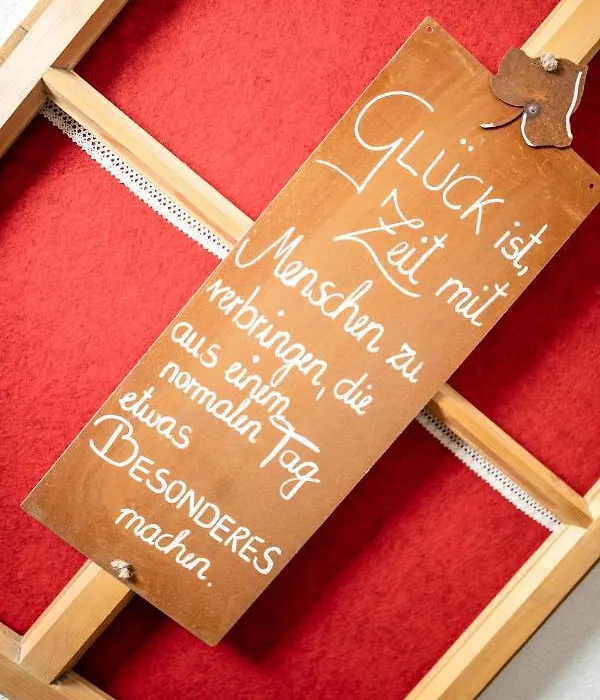 GLÜCK ist,
Zeit mit
Menschen zu
verbringen, die
aus einem
normalen Tag
etwas
BESONDERES
machen.